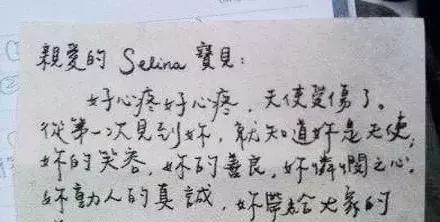 親愛的 Selina 寶貝:
好心疼好心疼，天使受傷了。
從第一次見到妳，就知道妳是天使，
妳的笑容，妳的善良，妳憐憫之心。
妳動人的真誠，妳帶給大家的